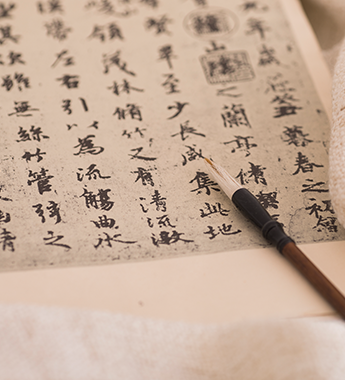 年歲在癸丑暮春之初會
山之蘭亭脩稧
畢至少長咸集此地
領茂林脩竹又有清流激
帶左右引以為流觴曲水
其次雖無絲竹管弦之
情